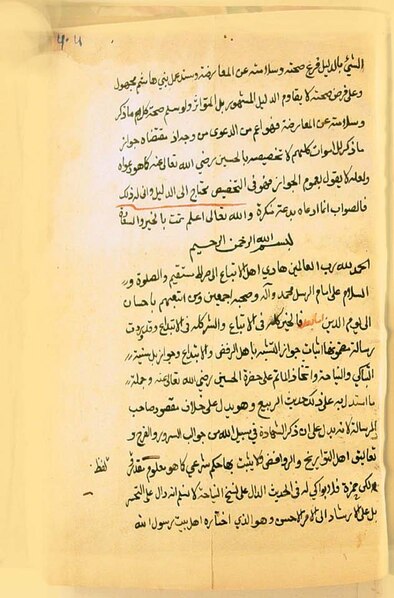 الشئ مالدليل فرع صحته وسلامته عن المعارضة وسند عمل بني هاشم مجهول
وعلى فرض صحته لا يقاوم الدليل المشهور بل المتواتر ولو سلم صحة كلام ما ذكر
وسلامته عن المعارضة فهو اعم من الدعوى من وجه اذ مقتضاه جواز
ما ذكر للاموات كلهم لا تخصيصه بالحسين رضي الله تعالى عنه كما هو دعواه
ولعله لا يقول بعموم الجواز فهو في التخصيص محتاج الى الدليل وانى له ذلك
فالصواب انما ادعاه بدعة منكرة والله تعالى اعلم تمت بالخير والسعادة
بسم الله الرحمن الرحيم
الحمد لله رب العالمين هادي اهل الاتباع الى صراط مستقيم والصلوة و
السلام على امام الرسل محمد وآله وصحبه اجمعين ومن اتبعهم باحسان
الى يوم الدين فالخير كله في الاتباع والشر كله في الابتداع وقد رويت
رسالة مضمونها اثبات جواز التشبه باهل الرفض والابتداع وجواز بل سنية
التباكي والنياحة واتخاذ الماتم على حضرة الحسين رضي الله تعالى عنه وجملة
ما استدل به على ذلك حديث الربيع وهو يدل على خلاف مقصود صاحب
الرسالة لانه يدل على ان ذكر الشهادة في سبيل الله من جوالب السرور والفرح و
تعاليق اهل التواريخ والروافض لا يثبت بها حكم شرعي كما هو معلوم
لفظ
حمزة فلا بواكي له في الحديث الدال على نسخ النياحة لا نسلم انه دال على التحسر
بل على الارشاد الى الامر الاحسن وهو الذي اختاره اهل بيت رسول الله